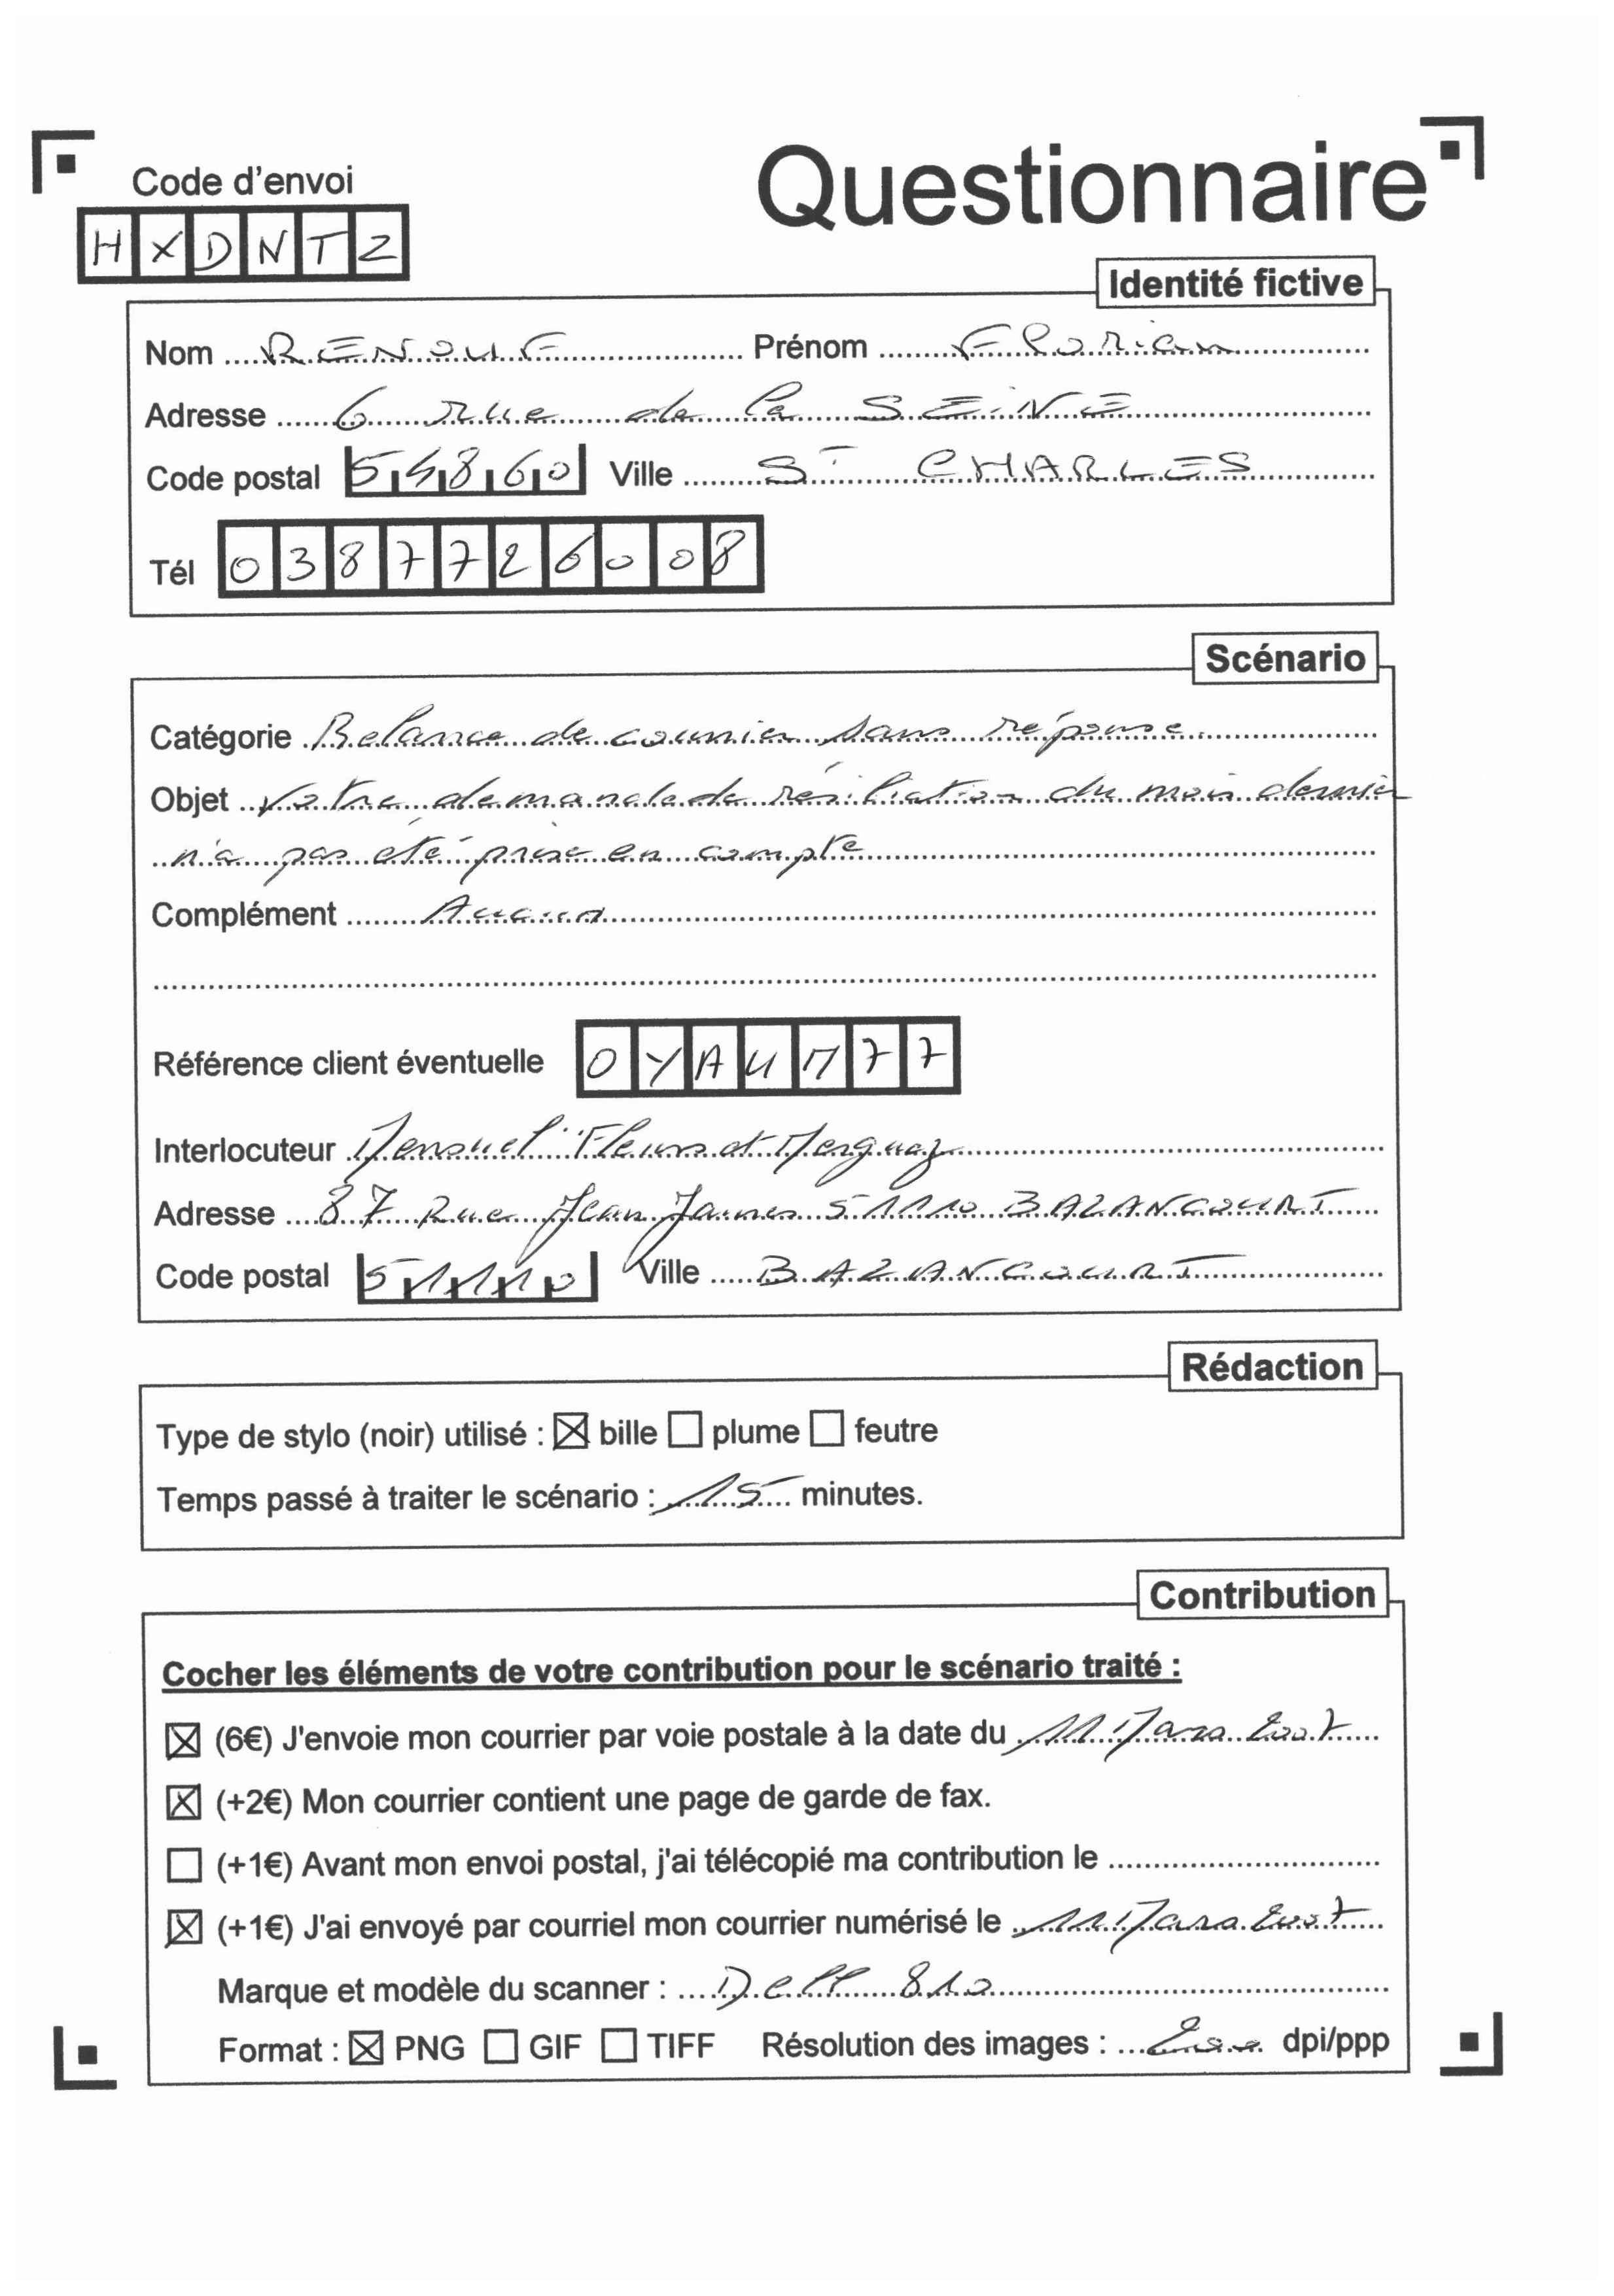 Questionnaire
Code d'envoi
HXDNTZ
Identité fictive
Nom RENOUF Prénom Florian
Adresse 6 rue de la SEINE
Code postal 54860 Ville ST CHARLES
Tél 0387726008
Scénario
Catégorie Relance de courrier sans réponse
Objet Votre demande de résiliation du mois dernier
n'a pas été prise en compte
Complément Aucun
Référence client éventuelle OYAUM77
Interlocuteur Mensuel Fleurs et Merguez
Adresse 87 Rue Jean Jaures 51110 BAZANCOURT
Code postal 51110 Ville BAZANCOURT
Rédaction
Type de stylo (noir) utilisé : ☒ bille ☐ plume ☐ feutre
Temps passé à traiter le scénario : 15 minutes.
Contribution
Cocher les éléments de votre contribution pour le scénario traité :
☒ (6€) J'envoie mon courrier par voie postale à la date du 11 Mars 2007
☒ (+2€) Mon courrier contient une page de garde de fax.
☐ (+1€) Avant mon envoi postal, j'ai télécopié ma contribution le
☒ (+1€) J'ai envoyé par courriel mon courrier numérisé le 11 Mars 2007
Marque et modèle du scanner : Dell 810
Format : ☒ PNG ☐ GIF ☐ TIFF Résolution des images : dpi/ppp